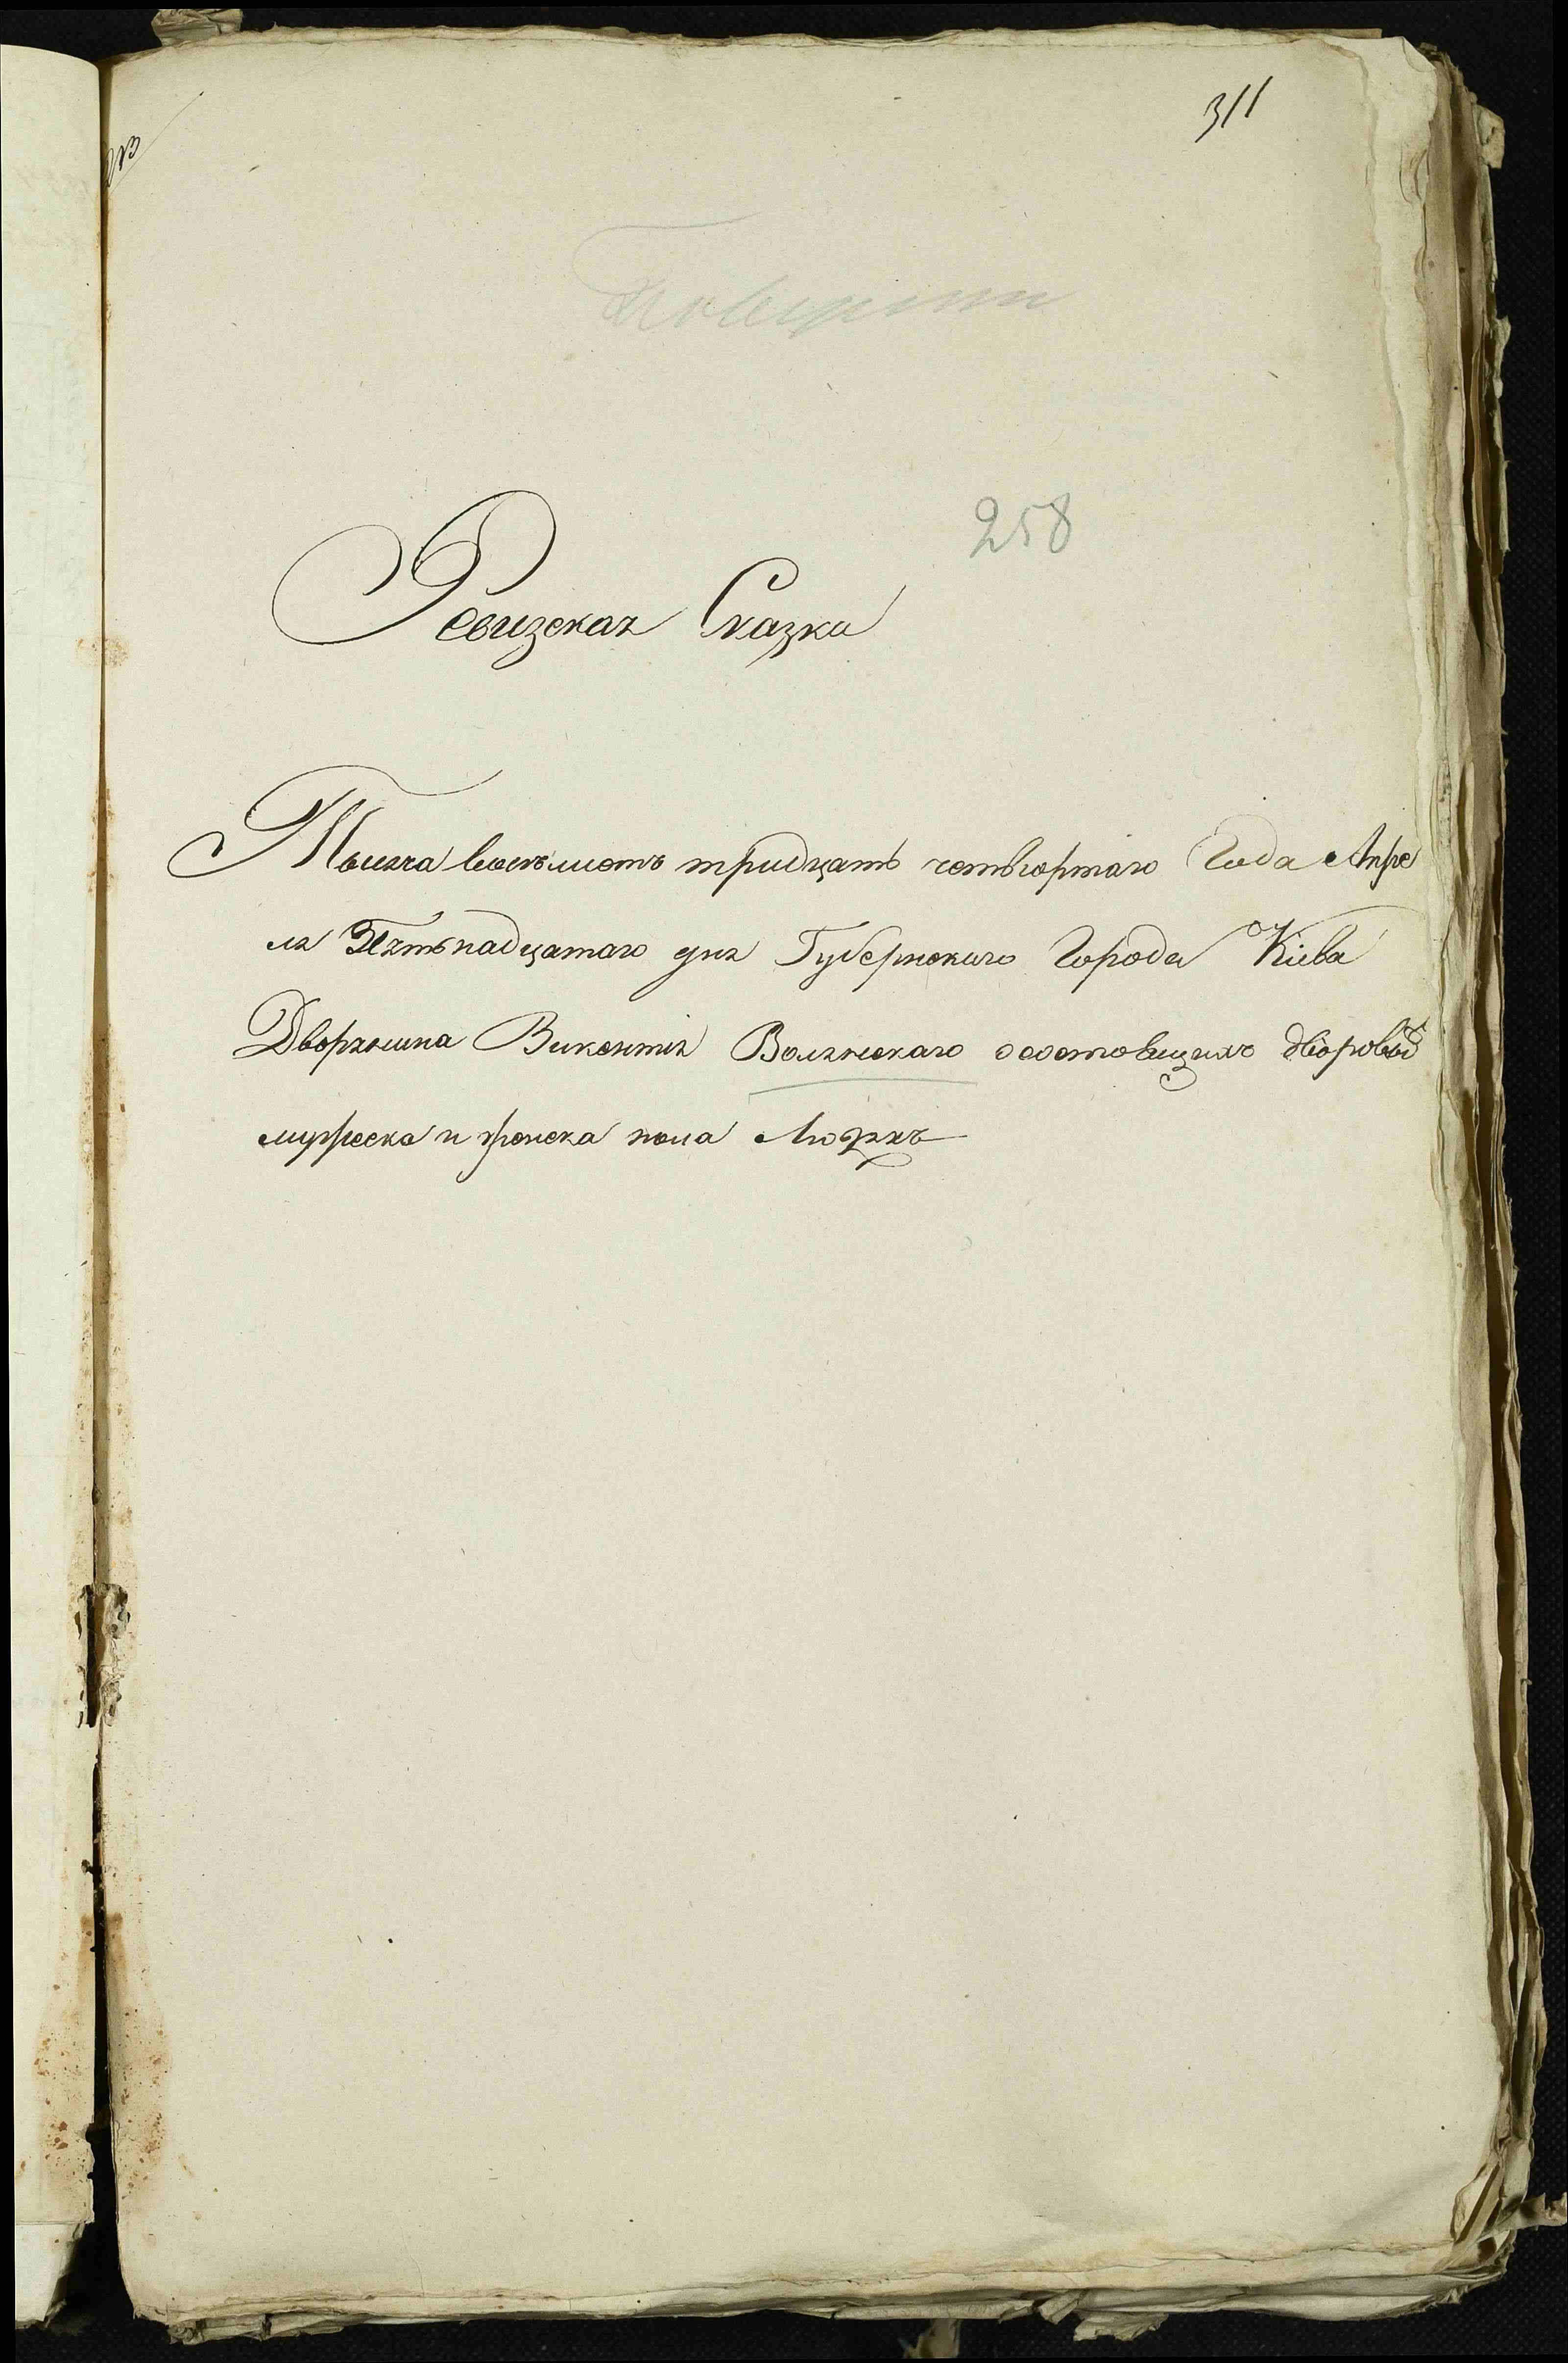 311
Повѣрити
258
Ревизская Сказка
Тысяча восемьсотъ тридцать четвертаго Года Апре
ля Пятьнадцатаго дня Губернскаго Города Кіева
Дворянина Викентія Волянскаго о состоящихъ дворовых
мужеска и женска пола Людяхъ